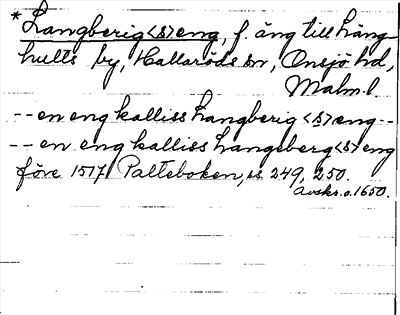 *Langberig<s>eng, f. äng till Läng-
hults by, Hallaröds sn, Onsjö hd,
Malm.l.
--en eng kalliss Langberig<s>æng--
--en eng kalliss Langsberg<s>eng
före 1517 Palteboken, ss 249, 250.
Avskr. o. 1650.